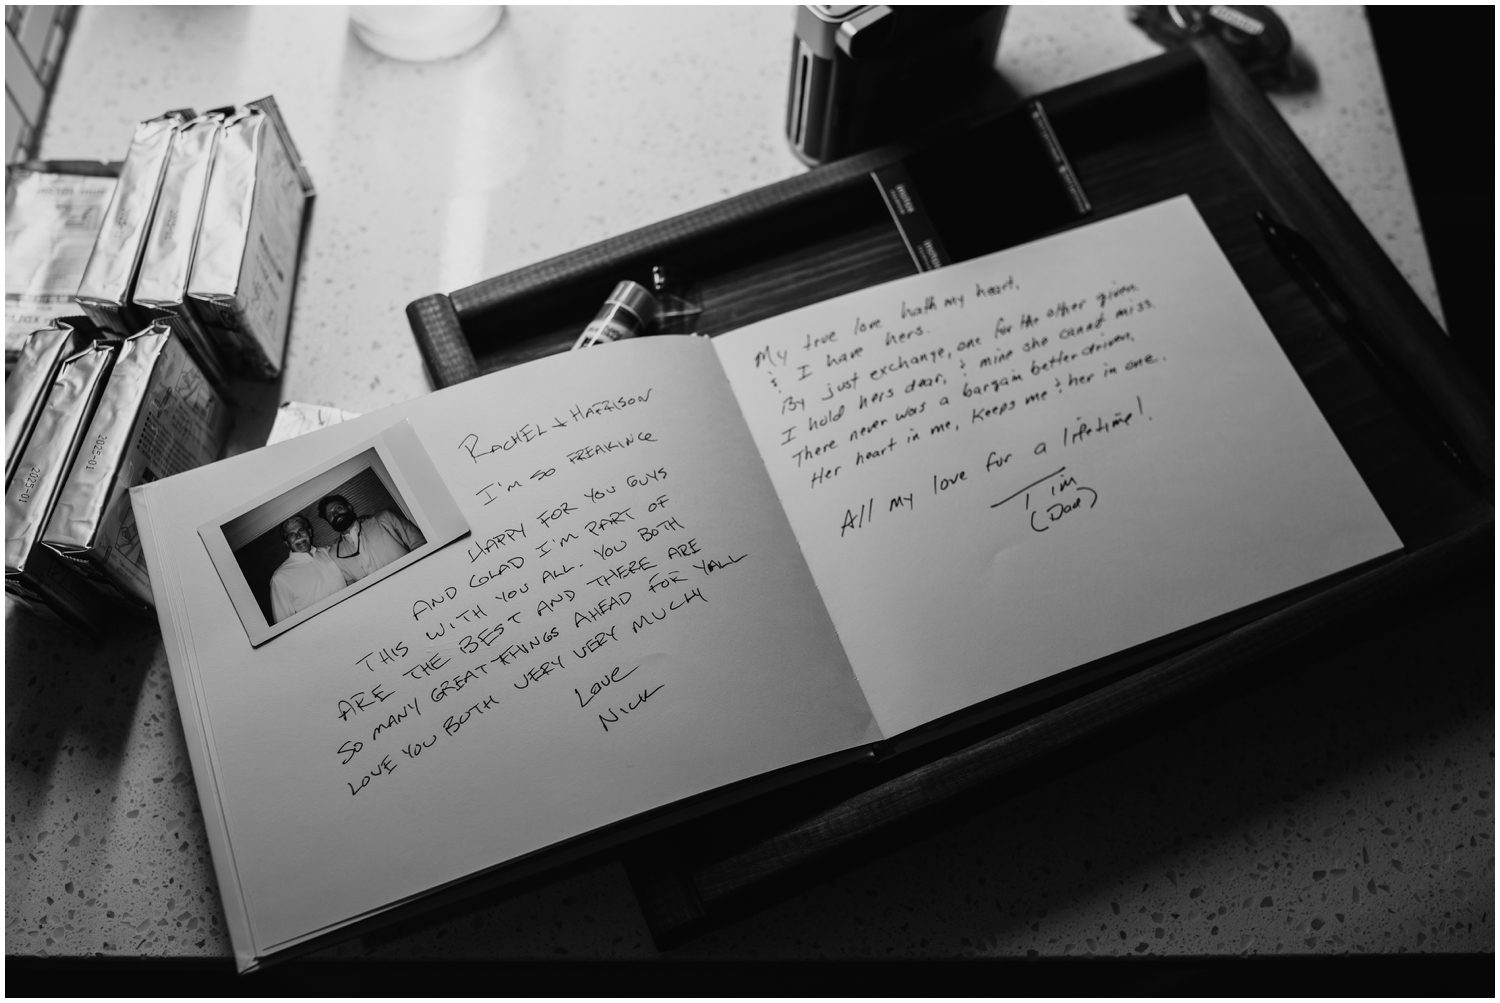 RACHEL & HARRISON
I'M SO FREAKING
HAPPY FOR YOU GUYS
AND GLAD I'M PART OF
THIS WITH YOU ALL. YOU BOTH
ARE THE BEST AND THERE ARE
SO MANY GREAT THINGS AHEAD FOR Y'ALL
LOVE YOU BOTH VERY VERY MUCH
Love
NICK
My true love hath my heart,
& I have hers.
By just exchange, one for the other given
I hold hers dear, & mine she cannot miss.
There never was a bargain better driven.
Her heart in me, keeps me & her in one.
All my love for a lifetime!
Tim
(Dad)
2025-01
2025-01